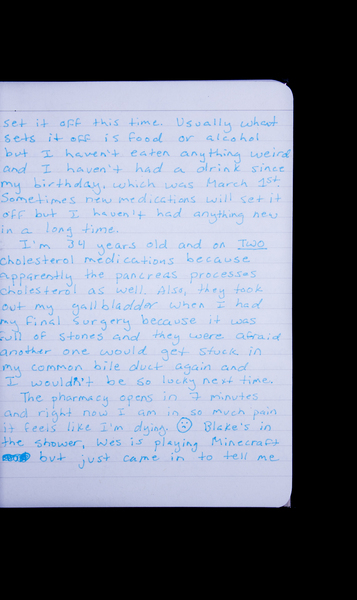 set it off this time. Usually what
sets it off is food or alcohol
but I haven't eaten anything weird
and I haven't had a drink since
my birthday, which was March 1st.
Sometimes new medications will set it
off but I haven't had anything new
in a long time.
I'm 34 years old and on TWO
cholesterol medications because
apparently the pancreas processes
cholesterol as well. Also, they took
out my gallbladder when I had
my final surgery because it was
full of stones and they were afraid
another one would get stuck in
my common bile duct again and
I wouldn't be so lucky next time.
The pharmacy opens in 7 minutes
and right now I am in so much pain
it feels like I'm dying. ☹ Blake's in
the shower, Wes is playing Minecraft
but just came in to tell me